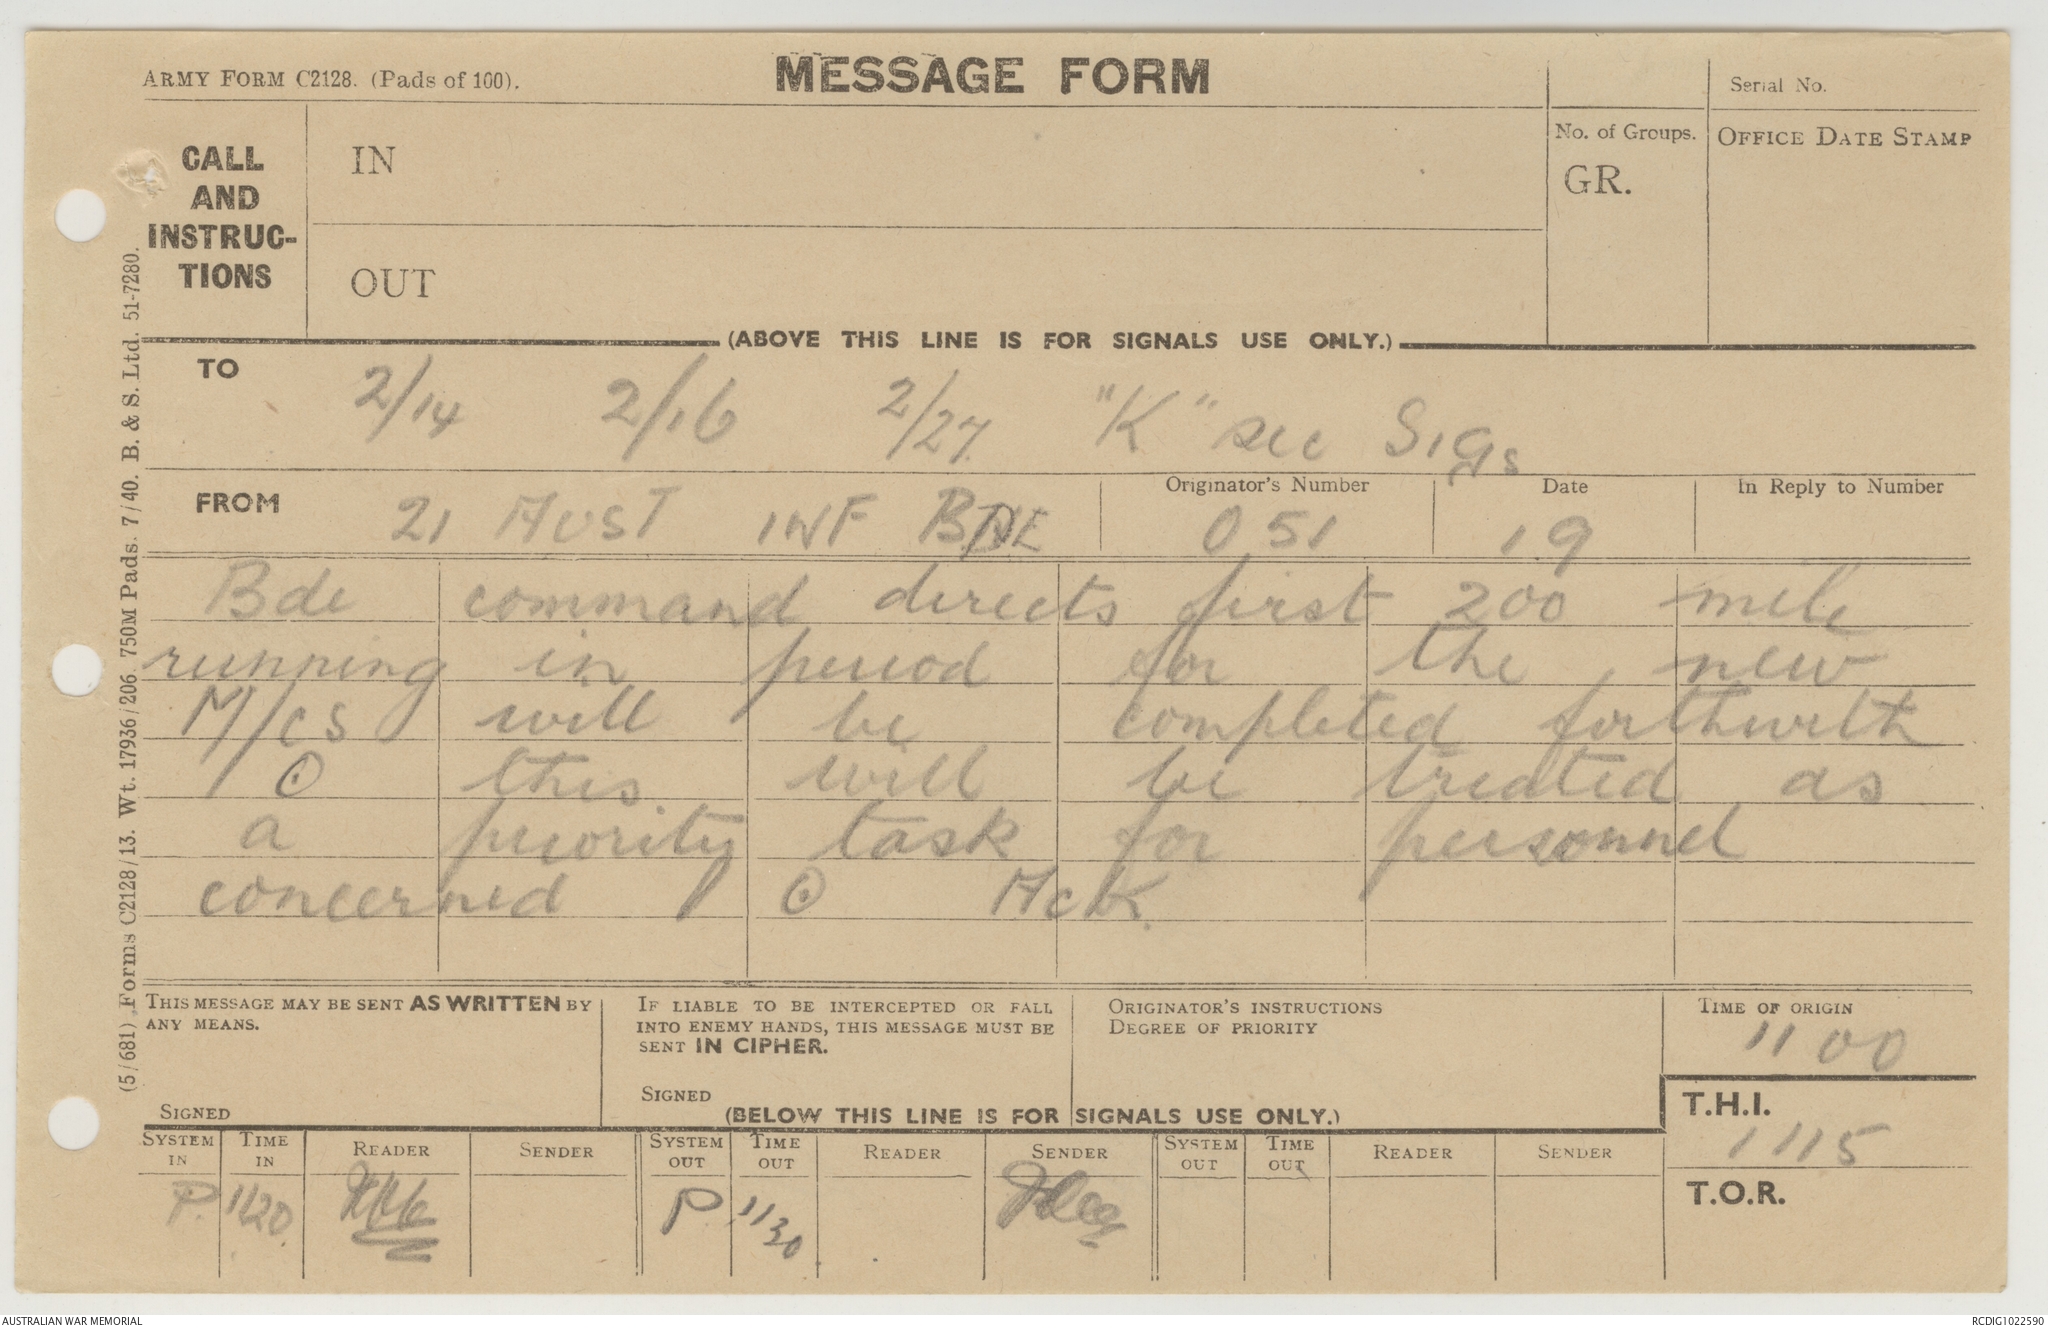 ARMY FORM C2128. (Pads of 100).
MESSAGE FORM
Serial No.
CALL
AND
INSTRUC-
TIONS
IN
OUT
No. of Groups.
GR.
OFFICE DATE STAMP
(ABOVE THIS LINE IS FOR SIGNALS USE ONLY.)
TO
2/14 2/16 2/27 "K" sec Sigs
FROM
21 AUST INF BDE
Originator's Number
051
Date
19
In Reply to Number
Bde command directs first 200 mile
running in period for the new
M/cs will be completed forthwith
⊙ this will be treated as
a priority task for personnel
concerned ⊙ Ack
THIS MESSAGE MAY BE SENT AS WRITTEN BY
ANY MEANS.
SIGNED
IF LIABLE TO BE INTERCEPTED OR FALL
INTO ENEMY HANDS, THIS MESSAGE MUST BE
SENT IN CIPHER.
SIGNED
ORIGINATOR'S INSTRUCTIONS
DEGREE OF PRIORITY
TIME OF ORIGIN
1100
(BELOW THIS LINE IS FOR SIGNALS USE ONLY.)
T.H.I.
1115
T.O.R.
SYSTEM IN
TIME IN
READER
SENDER
SYSTEM OUT
TIME OUT
READER
SENDER
SYSTEM OUT
TIME OUT
READER
SENDER
P. 1120 P. 1130
(5/681) Forms C2128/13. Wt. 17936/206. 750M Pads. 7/40. B. & S. Ltd. 51-7280.
AUSTRALIAN WAR MEMORIAL
RCDIG1022590